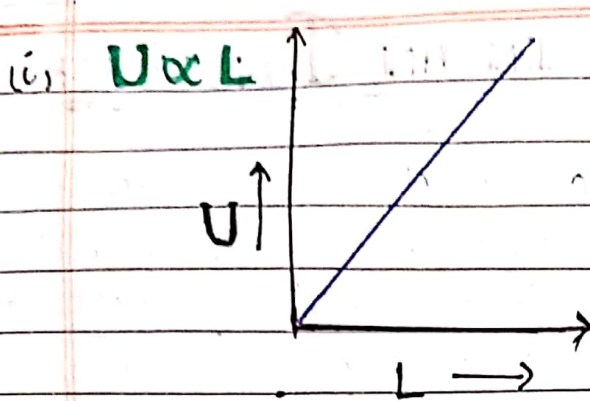 (i) U ∝ L
U ↑
L →